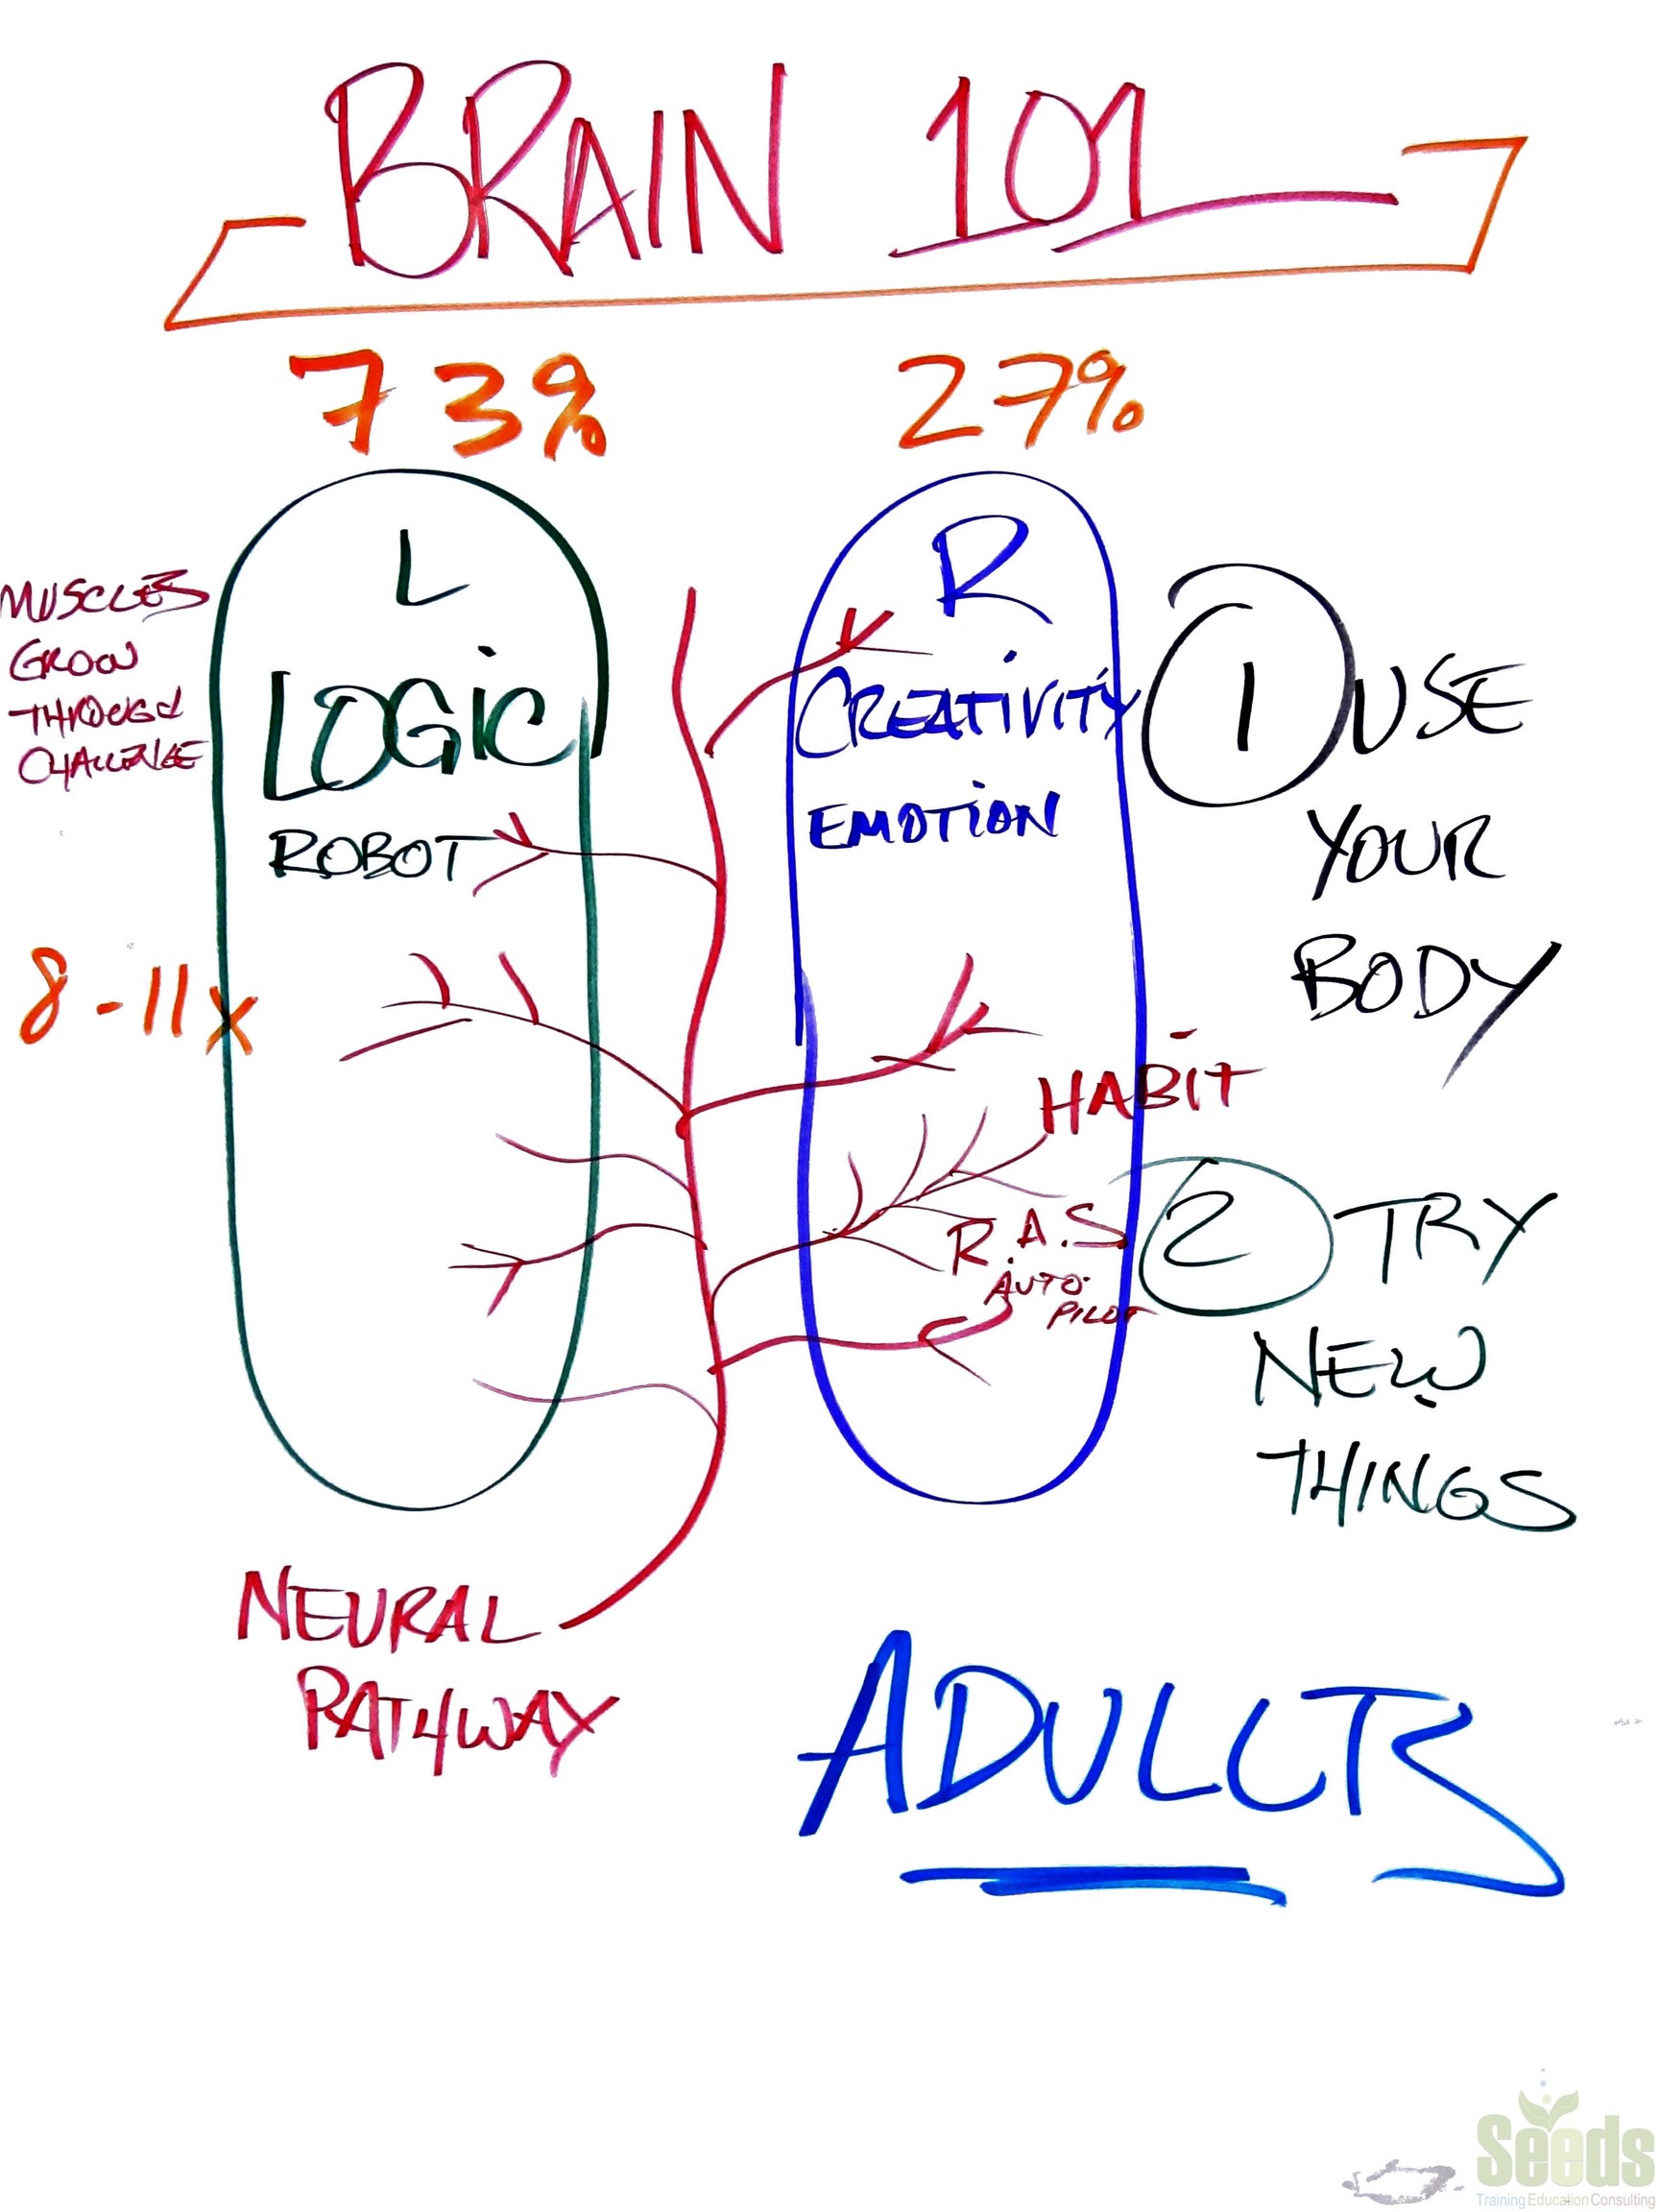 BRAIN 101
73% 27%
L
LOGiC
ROBOT
R
CREATiViTY
EMOTiON
MUSCLES
GROW
THROUGH
CHALLENGE
8-11x
1 USE
YOUR
BODY
HABiT
R.A.S
AUTO
PILOT
2 TRY
NEW
THINGS
NEURAL
PATHWAY
ADULLTS
Seeds
Training Education Consulting